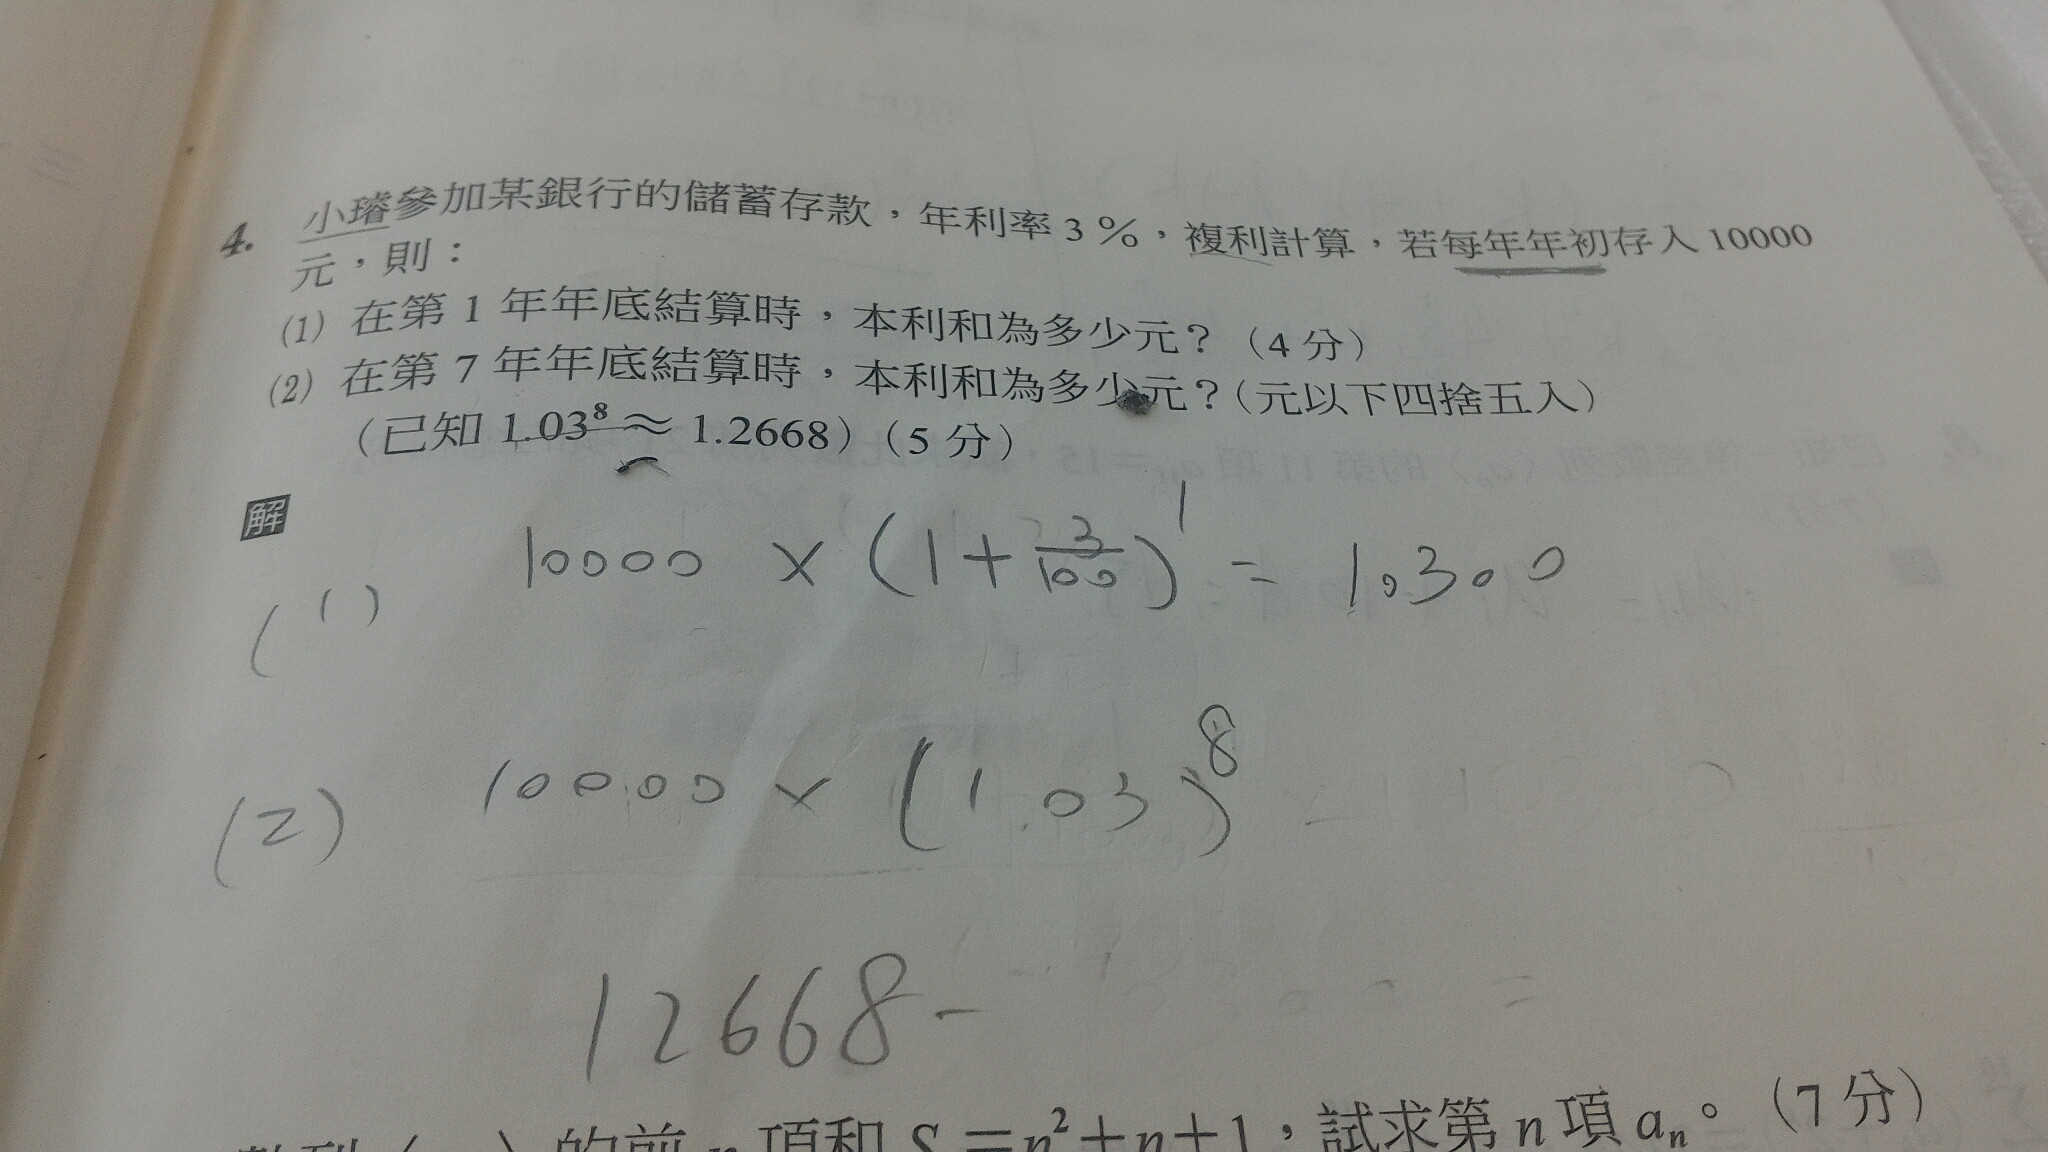 4. 小璿參加某銀行的儲蓄存款，年利率3%，複利計算，若每年年初存入10000
元，則：
(1) 在第1年年底結算時，本利和為多少元？（4分）
(2) 在第7年年底結算時，本利和為多少元？（元以下四捨五入）
（已知1.03⁸≈1.2668）（5分）
解
(1) 10000 × (1+3/100)¹ = 10300
(2) 10000 × (1.03)⁸
12668-
的前n項和Sₙ=n²+n+1，試求第n項aₙ。（7分）